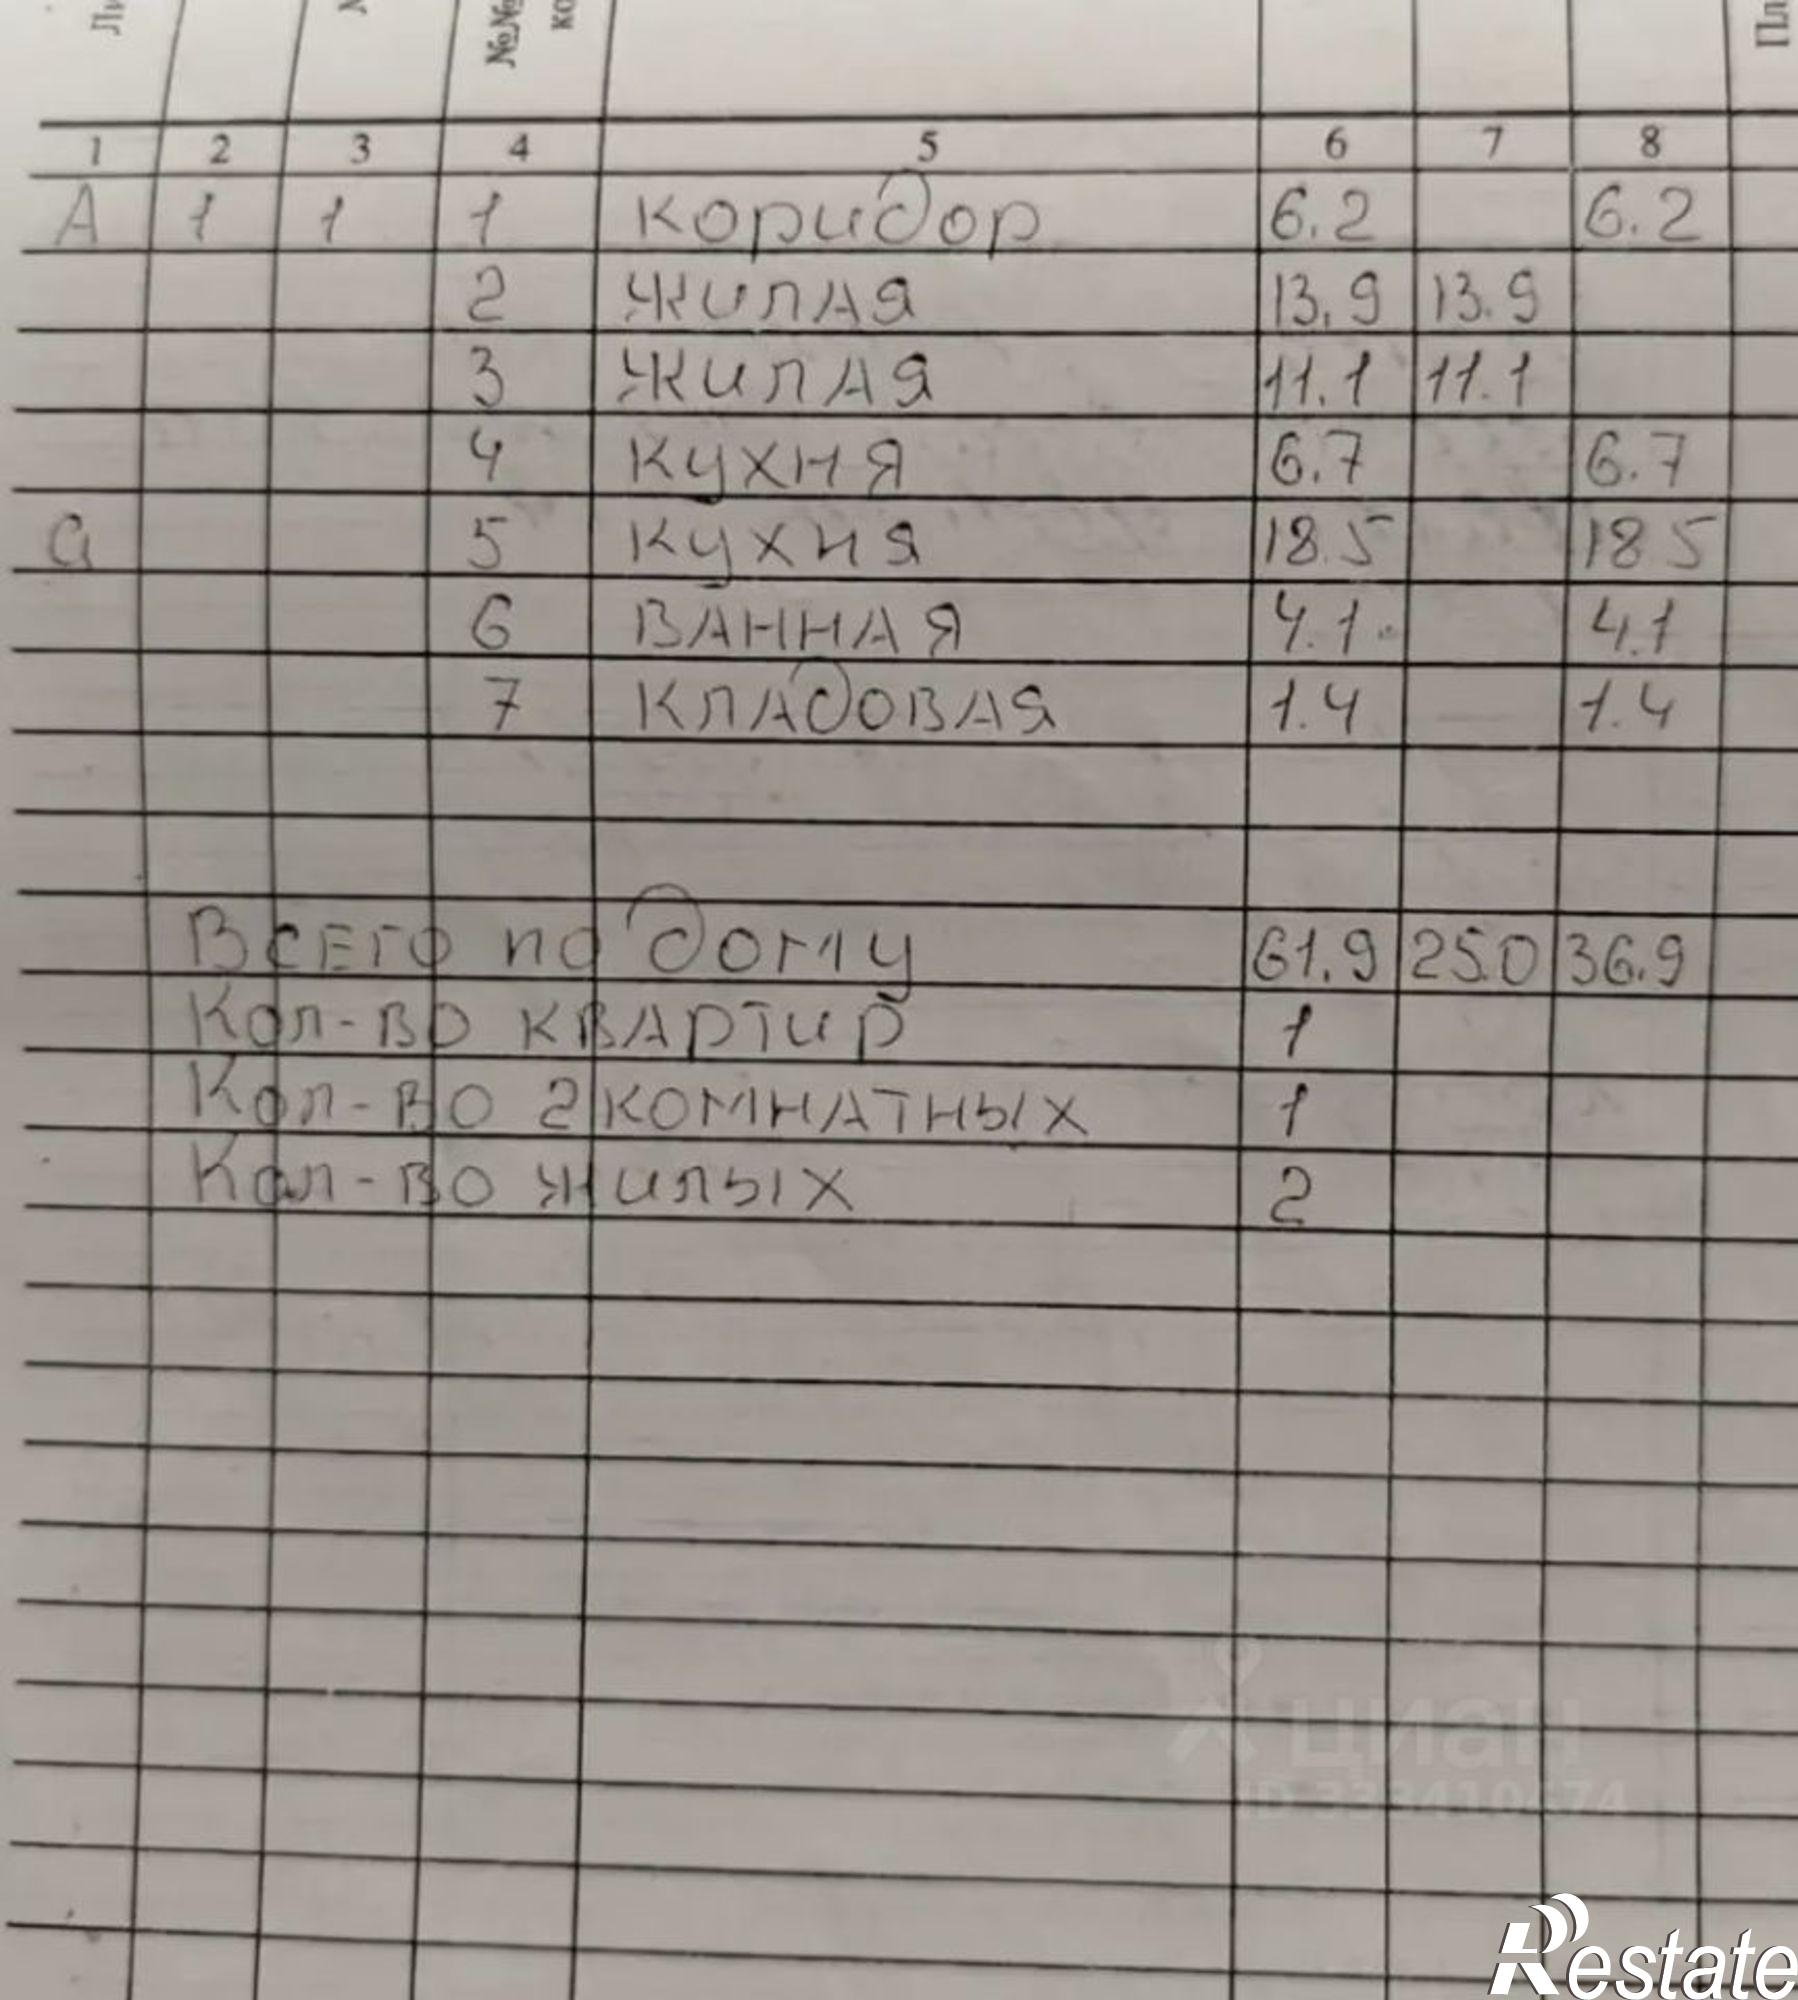 №№
1 2 3 4 5 6 7 8
А 1 1 1 коридор 6.2 6.2
2 жилая 13.9 13.9
3 жилая 11.1 11.1
4 кухня 6.7 6.7
а 5 кухня 18.5 18.5
6 ванная 4.1 4.1
7 кладовая 1.4 1.4
Всего по дому 61.9 25.0 36.9
Кол-во квартир 1
Кол-во 2комнатных 1
Кол-во жилых 2
циан
Restate